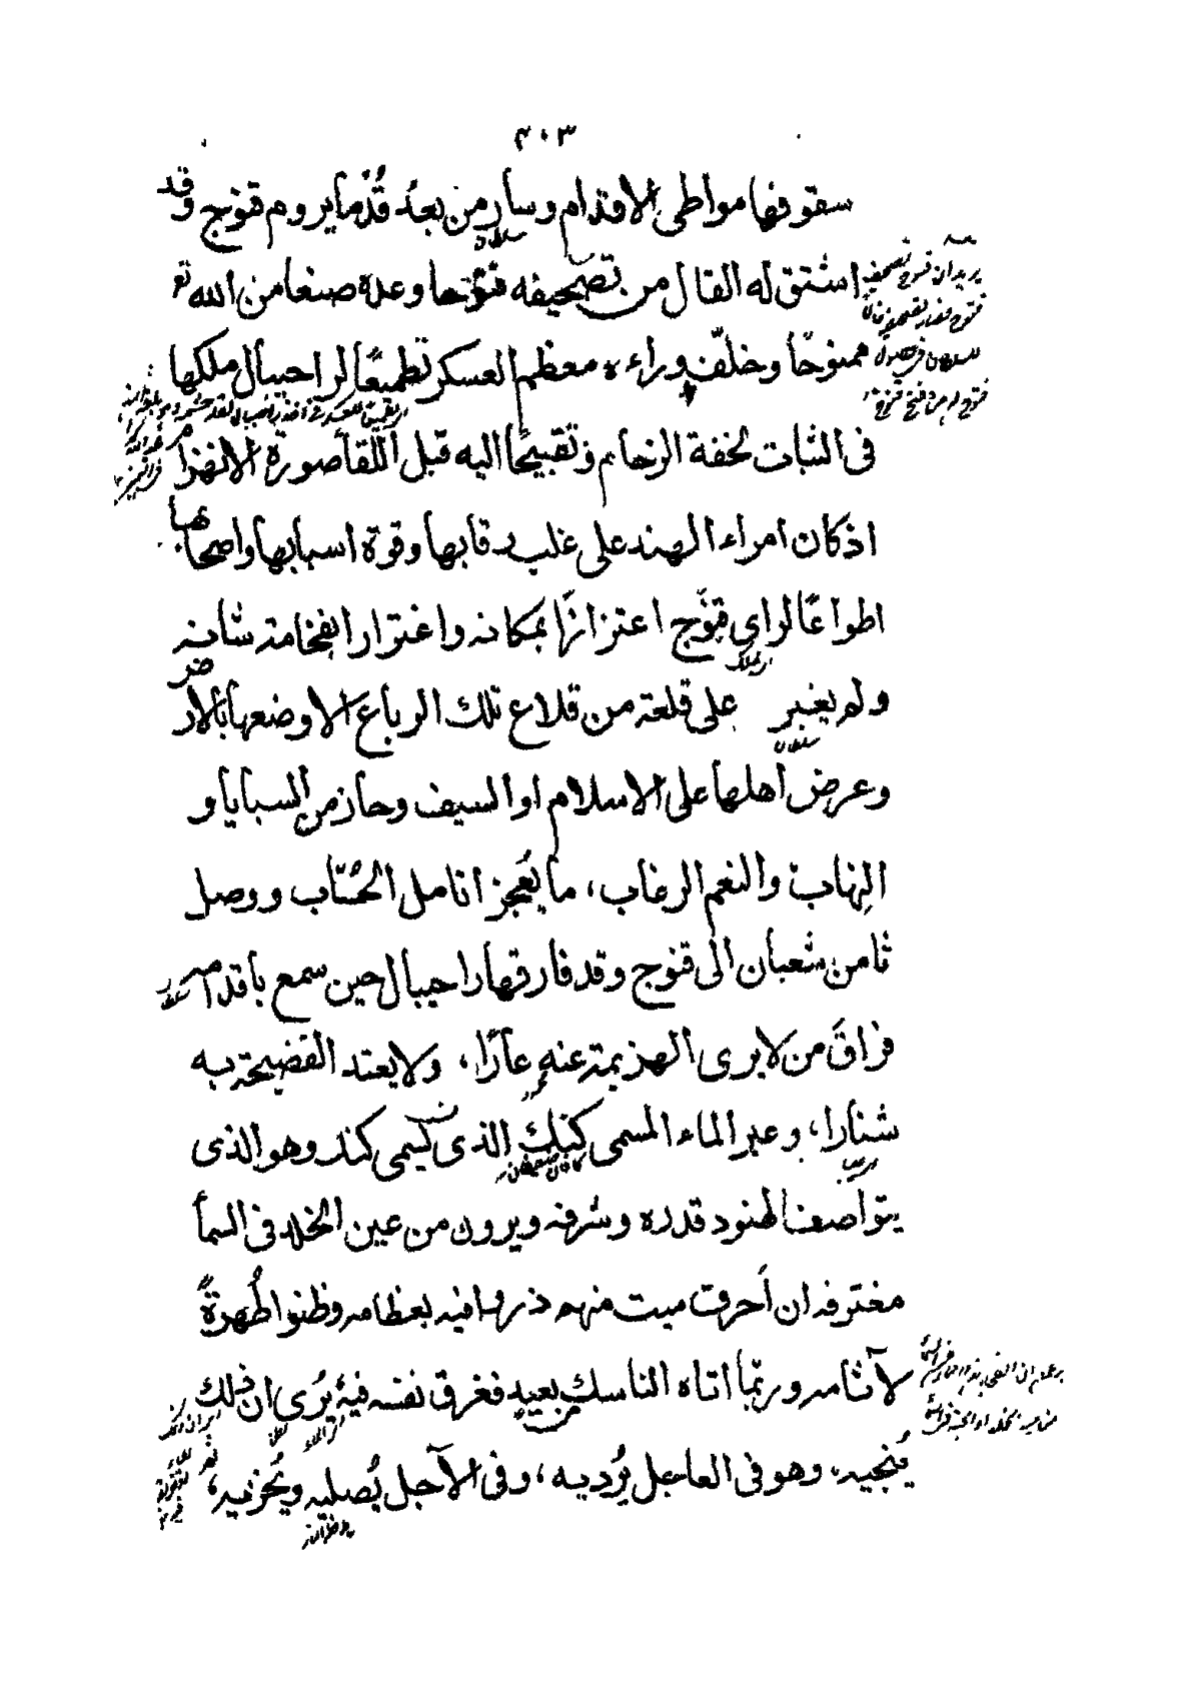 ٤٠٣
سقوفها مواطى الاقدام وسار من بعدُ قُدُما يروم قنوج وقد
سلطان
اشتق له الفال من تصحيفه فتوحا وعدة صنعا من الله تع
ممنوحًا وخلّف وراءه معظم العسكر تطميعًا لراجيبال ملكها
فى الثبات لخفة الزحام وتقبيحًا اليه قبل اللقأ صورة الانهزام
اذ كان امراء الهند على غلب رقابها وقوة اسبابها واصحابها
اطواعًا لراى قنّوج اعتزازًا بمكانه واغترارا بفخامة شانه
ولم يغبر على قلعة من قلاع تلك الرباع الا وضعها بالارض
سلطان
وعرض اهلها على الاسلام او السيف وحاز من السبايا و
النهاب والنعم الرغاب، ما يُعجز انامل الحُسّاب ووصل
ثامن شعبان الى قنوج وقد فارقها راجيبال حين سمع باقدامه
فراقَ من لا يرى الهزيمة عنه عارًا، ولا يعتد الفضيحة به
شنارا، وعبر الماء المسمى كنك الذى يسمى كند وهو الذى
يتواصف الهنود قدره وشرفه ويرون من عين الخلد فى السمأ
مغترفه ان اَحرق ميت منهم ذروا فيه بعظامه وظنوا طُهرةً
لآثامه وربّما اتاه الناسك من بعيد فغرق نفسه فيه يُرى ان ذلك
يُنجيه، وهو فى العاجل يُرديه، وفى الآجل يُصليه ويُخزيه،